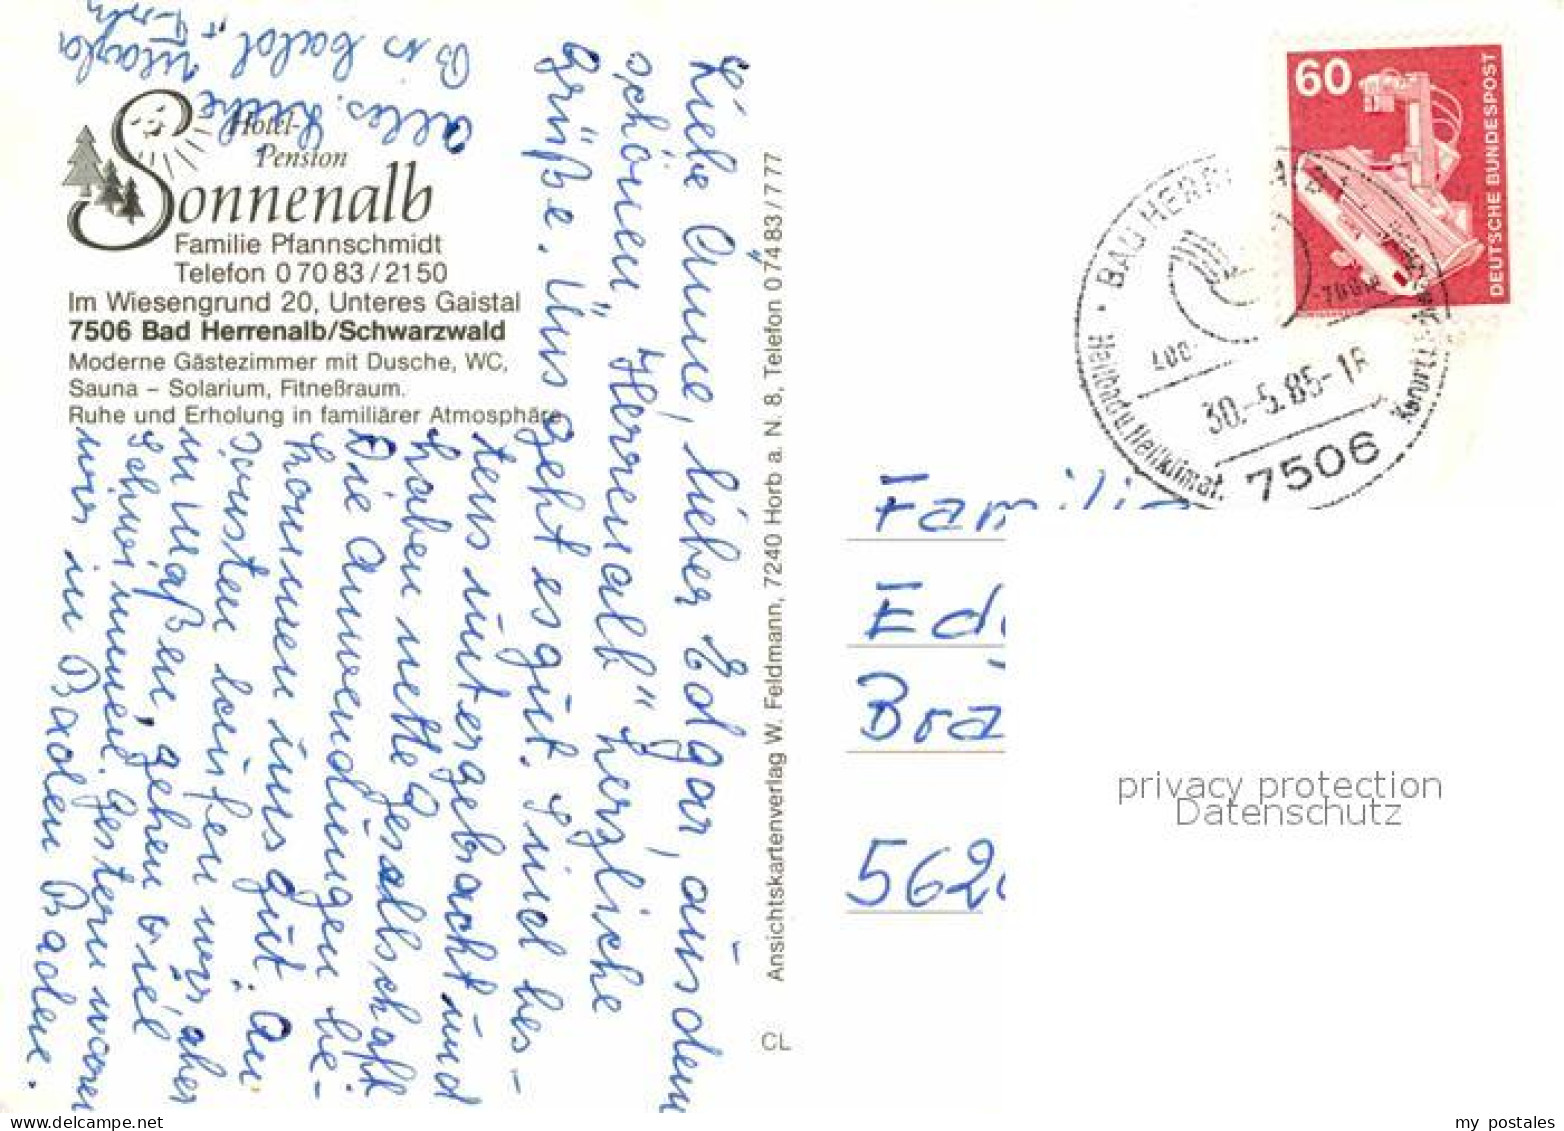 Hotel-
Pension
Sonnenalb
Familie Pfannschmidt
Telefon 0 70 83 / 21 50
Im Wiesengrund 20, Unteres Gaistal
7506 Bad Herrenalb/Schwarzwald
Moderne Gästezimmer mit Dusche, WC,
Sauna – Solarium, Fitneßraum.
Ruhe und Erholung in familiärer Atmosphäre
Liebe Änne, lieber Edgar, aus dem
schönen „Herrenalb" herzliche
Grüße. Uns geht es gut. Sind bes-
tens untergebracht und
haben nette Gesellschaft
Die Anwendungen be-
kommen uns gut. An
sonsten laufen wir aber
in Maßen, gehen viel
schwimmen. Gestern waren
wir in Baden Baden.
alles Liebe
Bis bald,
Ansichtskartenverlag W. Feldmann, 7240 Horb a. N. 8, Telefon 0 74 83 / 7 77
CL
60
DEUTSCHE BUNDESPOST
BAD HERRENALB
400-
-700m
30.-5.85-16
7506
Heilbad u Heilklimat.
Kurort
Familie
Ed
Brä
562
privacy protection
Datenschutz
my postales
www.delcampe.net